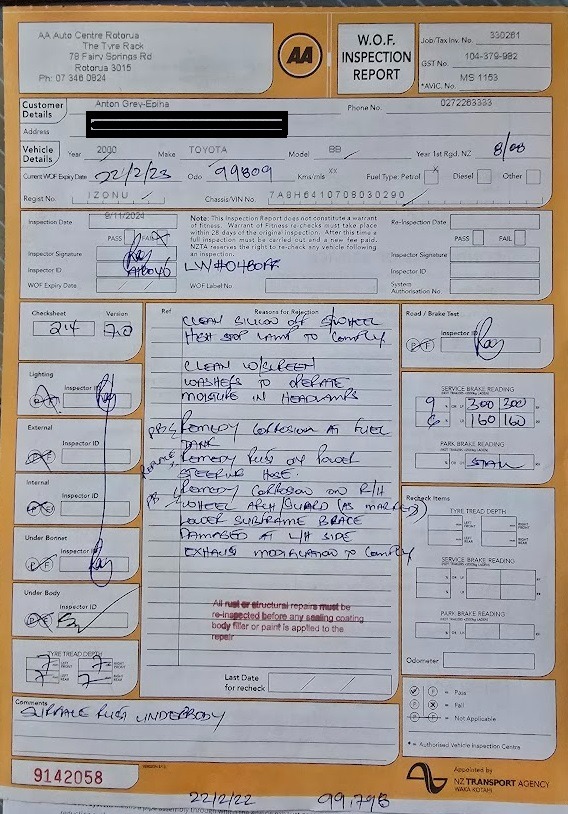 AA Auto Centre Rotorua
The Tyre Rack
78 Fairy Springs Rd
Rotorua 3015
Ph: 07 346 0824
AA
W.O.F.
INSPECTION
REPORT
Job/Tax Inv. No. 330261
GST No. 104-379-982
*AVIC. No. MS 1153
Customer
Details
Anton Grey-Epiha
Phone No. 0272263333
Address
Vehicle
Details
Year 2000 Make TOYOTA Model BB Year 1st Rgd. NZ 8/08
Current WOF Expiry Date 22/2/23 Odo 99809 Kms/mls xx Fuel Type: Petrol x Diesel Other
Regist No. IZONU Chassis/VIN No. 7A8H6410708030290
Inspection Date 8/11/2024
PASS FAIL
Inspector Signature
Inspector ID
WOF Expiry Date
Note: This Inspection Report does not constitute a warrant
of fitness. Warrant of Fitness re-checks must take place
within 28 days of the original inspection. After this time a
full inspection must be carried out and a new fee paid.
NZTA reserves the right to re-check any vehicle following
an inspection.
WOF Label No.
Re-Inspection Date
PASS FAIL
Inspector Signature
Inspector ID
System
Authorisation No
Checksheet Version
214 7.0
Lighting
Inspector ID
External
Inspector ID
Internal
Inspector ID
Under Bonnet
Inspector ID
Under Body
Inspector ID
TYRE TREAD DEPTH
7 LEFT FRONT 7 RIGHT FRONT
7 LEFT REAR 7 RIGHT REAR
Ref Reasons for Rejection
CLEAN SILICON OFF S/WHEEL
HIGH STOP LAMP TO COMPLY
CLEAN W/SCREEN
WASHERS TO OPERATE
MOISTURE IN HEADLAMPS
PBS REMEDY CORROSION AT FUEL
TANK
REPLACE REMEDY RUST ON POWER
STEERING HOSE
PBS REMEDY CORROSION ON R/H
WHEEL ARCH/GUARD (AS MARKED)
LOWER SUBFRAME BRACE
DAMAGED AT L/H SIDE
EXHAUST MODIFICATION TO COMPLY
All rust or structural repairs must be
re-inspected before any sealing coating
body filler or paint is applied to the
repair
Last Date
for recheck
Road / Brake Test
Inspector ID
SERVICE BRAKE READING
9 300 300
6 160 160
PARK BRAKE READING
STALL
Recheck Items
TYRE TREAD DEPTH
LEFT FRONT RIGHT FRONT
LEFT REAR RIGHT REAR
SERVICE BRAKE READING
PARK BRAKE READING
Odometer
= Pass
= Fail
= Not Applicable
* = Authorised Vehicle Inspection Centre
Comments
SURFACE RUST UNDERBODY
9142058
Appointed by
NZ TRANSPORT AGENCY
WAKA KOTAHI
22/2/22 99,798